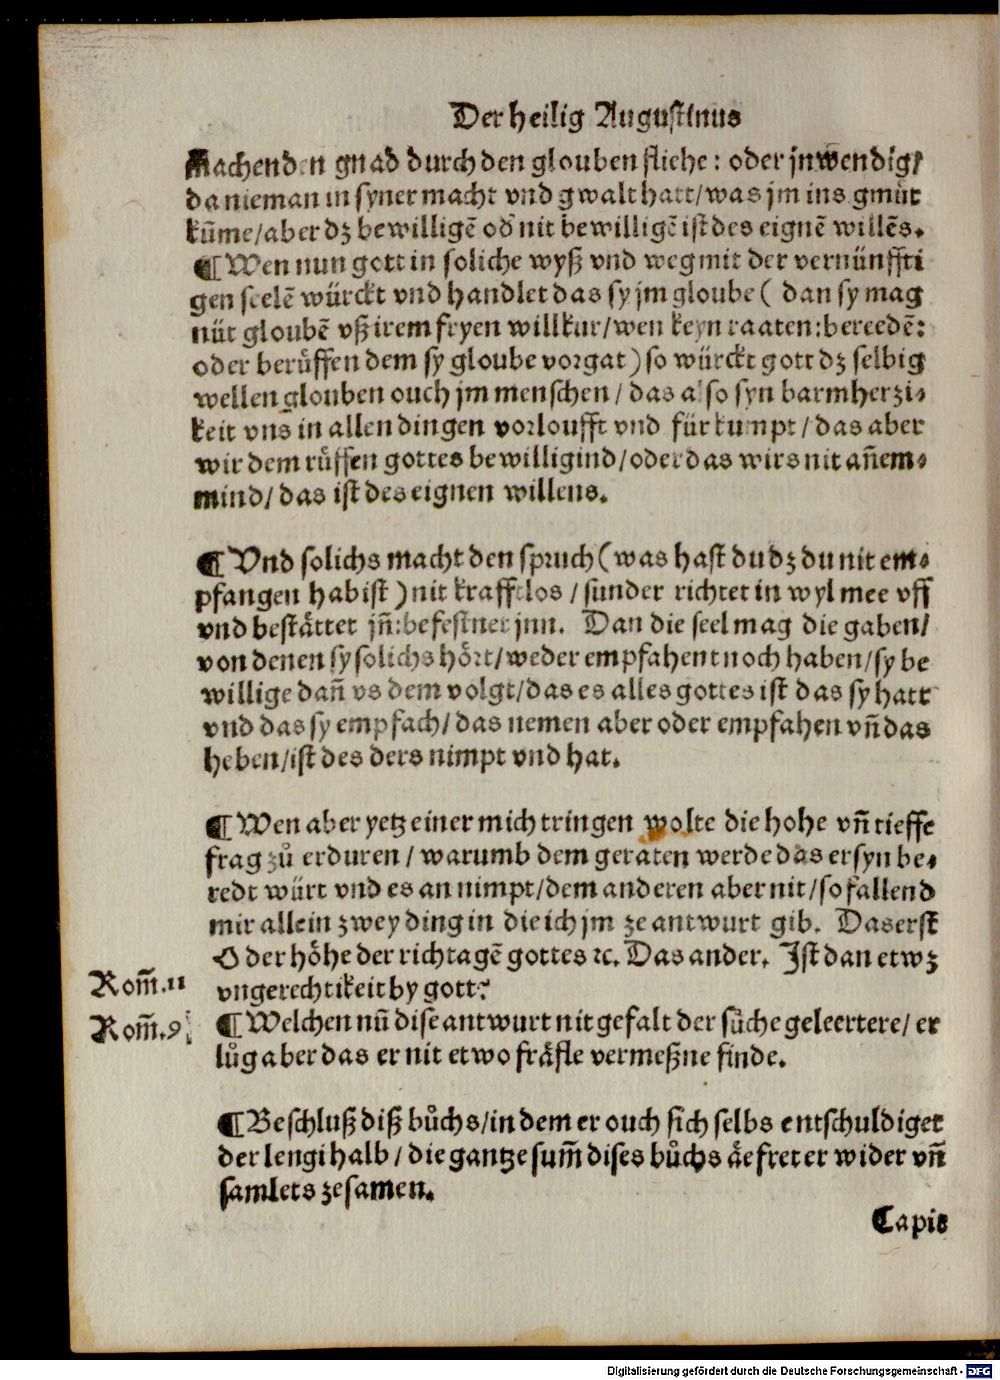 Der heilig Augustinus
machenden gnad durch den glouben fliehe: oder jnwendig/
da nieman in syner macht vnd gwalt hatt/was jm ins gmüt
kūme/aber dz bewilligē od̕ nit bewilligē ist des eignē willēs.
¶ Wen nun gott in soliche wyß vnd weg mit der vernünffti
gen seelē würckt vnd handlet das sy jm gloube ( dan sy mag
nüt gloubē vß irem fryen willkur/wen keyn raaten:bereedē:
oder berůffen dem sy gloube vorgat ) so würckt gott dz selbig
wellen glouben ouch jm menschen / das also syn barmherzi⸗
keit vns in allen dingen vorloufft vnd für kumpt / das aber
wir dem růffen gottes bewilligind/oder das wirs nit an̄em⸗
mind/ das ist des eignen willens.
¶ Vnd solichs macht den spruch ( was hast du dz du nit em⸗
pfangen habist ) nit krafftlos / sunder richtet in wyl mee vff
vnd bestättet jn̄:befestnet jnn. Dan die seel mag die gaben/
von denen sy solichs hört/weder empfahent noch haben/sy be
willige dan̄ vs dem volgt/das es alles gottes ist das sy hatt
vnd das sy empfach/ das nemen aber oder empfahen vn̄ das
heben/ist des ders nimpt vnd hat.
¶ Wen aber yetz einer mich tringen wolte die hohe vn̄ tieffe
frag zů erduren / warumb dem geraten werde das er syn be⸗
redt würt vnd es an nimpt/dem anderen aber nit/so fallend
mir allein zwey ding in die ich jm ze antwurt gib. Das erst
O der höhe der richtagē gottes ꝛc. Das ander. Ist dan etwz
vngerechtikeit by gott?
Rom̄.11
Rom̄.9
¶ Welchen nū dise antwurt nit gefalt der sůche geleertere/ er
lůg aber das er nit etwo fräfle vermeßne finde.
¶ Beschluß diß bůchs/in dem er ouch sich selbs entschuldiget
der lengi halb / die gantze sum̄ dises bůchs äefret er wider vn̄
samlets zesamen.
Capit
Digitalisierung gefördert durch die Deutsche Forschungsgemeinschaft - DFG